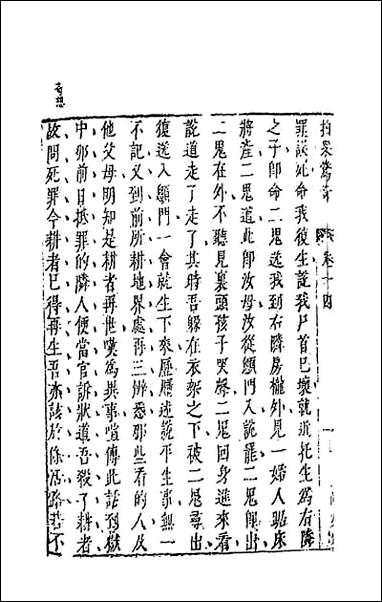 奇想
拍案驚奇 卷十四
罪誤死命我復生說我尸首已壞就近托生為右隣
之子即命二鬼送我到右隣房櫳外見一婦人踞床
將產二鬼道此即汝母汝從顖門入說罷二鬼即出
二鬼在外不聽見裏頭孩子哭聲二鬼回身進來看
說道走了走了其時吾躲在衣架之下被二鬼尋出
復送入顖門一會就生下來歷歷述說平生事無一
不記又到前所耕地界處再三辨悉那些看的人及
他父母明知是耕者再世嘆為異事喧傳此話到獄
中那前日抵罪的隣人便當官訴狀道吾殺了耕者
故問死罪今耕者已得再生吾亦該放條活路若不